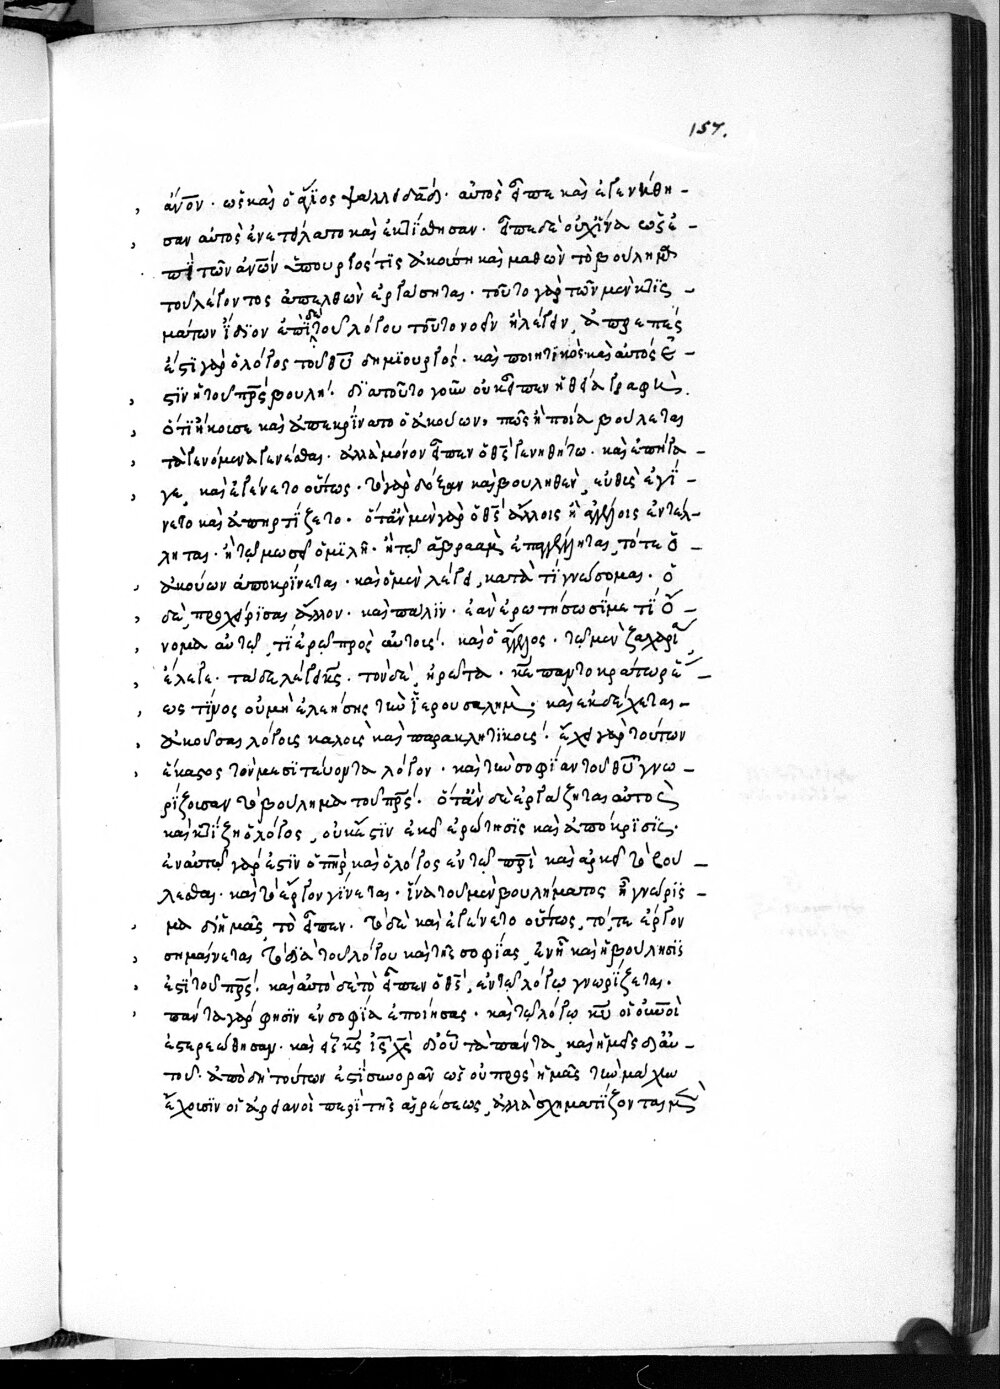 157.
ἀνον· ὡς καὶ ὁ ἅγϊος ψάλλει δαδ· αὐτὸς εἶπε καὶ ἐγενήθη -
σαν αὐτὸς ἐνετείλατο καὶ ἐκτίσθησαν· εἶπε δὲ οὐχ ἵνα ὡς ἐ -
πὶ τῶν ἀνων ὑπουργός τις ἀκούσῃ καὶ μαθὼν τὸ βούλημα
τοῦ λέγοντος ἀπελθὼν ἐργάσηται· τοῦτο γὰρ τῶν μὲν κτισ -
μάτων ἴδιον ἐπὶ δὲ τοῦ λόγου τοῦτο νοεῖν ἢ λέγειν, ἀπρεπές
ἔστι γὰρ ὁ λόγος τοῦ θυ δημιουργός· καὶ ποιητικὸς καὶ αὐτός ἐ -
στιν ἡ τοῦ πρς βουλή· διὰ τοῦτο γοῦν οὐκ εἶπεν ἡ θεία γραφὴ
ὅτι ἤκουσε καὶ ἀπεκρίνατο ὁ ἀκούων, πῶς ἢ ποῖα βούλεται
τὰ γενόμενα γενέσθαι· ἀλλὰ μόνον εἶπεν ὁ θς γενηθήτω· καὶ ἐπήγα -
γε, καὶ ἐγένετο οὕτως· τὸ γὰρ δόξαν καὶ βουληθὲν, εὐθὺς ἐγί -
νετο καὶ ἀπηρτίζετο· ὅταν μὲν γὰρ ὁ θς ἄλλοις ἢ ἀγγέλοις ἐντέλ -
ληται· ἢ τῷ μωσεῖ ὁμιλῆ· ἢ τῷ ἀβραὰμ ἐπαγγέλληται, τότε ὁ -
ἀκούων ἀποκρίνεται· καὶ ὁ μὲν λέγει, κατὰ τί γνώσομαι· ὁ
δὲ, προχείρισαι ἄλλον· καὶ πάλιν· ἐὰν ἐρωτήσωσί με τί ὄ -
νομα αὐτῷ, τί ἐρῶ πρὸς αὐτούς· καὶ ὁ ἄγγελος· τῷ μὲν ζαχαρίᾳ,
ἔλεγε· τάδε λέγει κς· τὸν δὲ, ἠρώτα· κε παντοκράτωρ ἕ -
ως τίνος οὐ μὴ ἐλεήσης τὴν ἱερουσαλὴμ· καὶ ἐκδέχεται -
ἀκοῦσαι λόγους καλοὺς καὶ παρακλητικούς· ἔχει γὰρ τούτων
ἕκαστος τὸν μεσιτεύοντα λόγον· καὶ τὴν σοφίαν τοῦ θυ γνω -
ρίζουσαν τὸ βούλημα τοῦ πρς· ὅταν δὲ ἐργάζηται αὐτὸς
καὶ κτίζῃ ὁ λόγος, οὐκ ἔστιν ἐκεῖ ἐρώτησις καὶ ἀπόκρισις·
ἐν αὐτῷ γάρ ἐστιν ὁ πὴρ καὶ ὁ λόγος ἐν τῷ πρὶ καὶ ἀρκεῖ τὸ βού -
λεσθαι· καὶ τὸ ἔργον γίνεται· ἵνα τοῦ μὲν βουλήματος ᾖ γνώρισ -
μα δι' ἡμᾶς, τὸ εἶπεν· τὸ δὲ καὶ ἐγένετο οὕτως, τό, τε ἔργον
σημαίνεται τὸ διὰ τοῦ λόγου καὶ τῆς σοφίας, ἐν ᾗ καὶ ἡ βούλησις
ἐστὶ τοῦ πρς· καὶ αὐτὸ δὲ τὸ εἶπεν ὁ θς, ἐν τῷ λόγῳ γνωρίζεται·
πάντα γὰρ φησὶν ἐν σοφίᾳ ἐποίησας· καὶ τῷ λόγῳ κυ οἱ οὐνοὶ
ἐστερεώθησαν· καὶ εἷς κς ις χς δι' οὗ τὰ πάντα, καὶ ἡμεῖς δι' αὐ -
τοῦ· ἀπὸ δὴ τούτων ἐστὶ συνορᾶν ὡς οὐ πρὸς ἡμᾶς τὴν μάχην
ἔχουσιν οἱ ἀρειανοὶ περὶ τῆς αἱρέσεως, ἀλλὰ σχηματίζονται μὲν